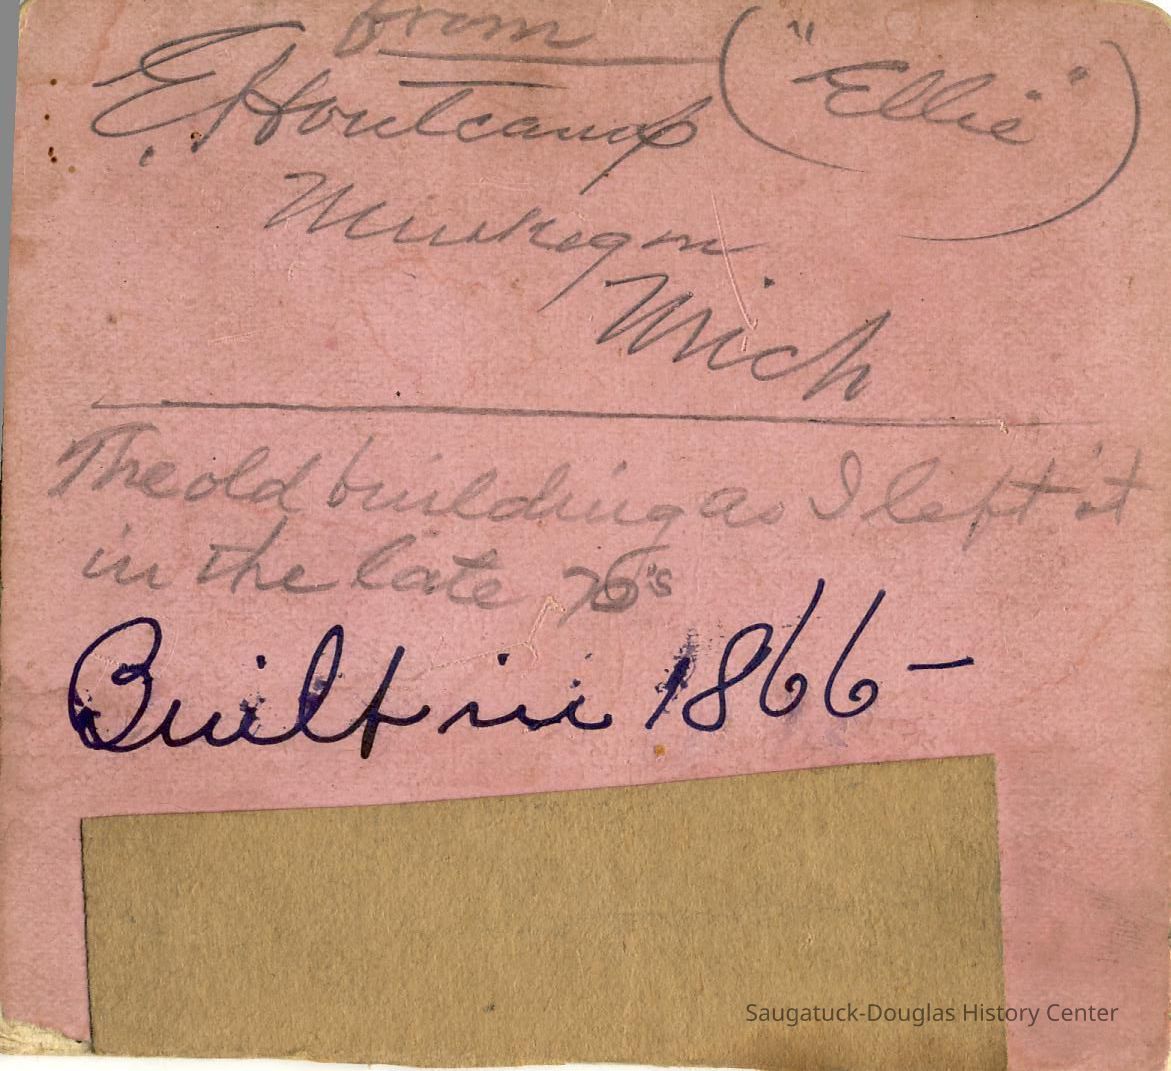 from
E. Houtcamp ("Ellie")
Muskegon
Mich
The old building as I left it
in the late 70's
Built in 1866 –
Saugatuck-Douglas History Center